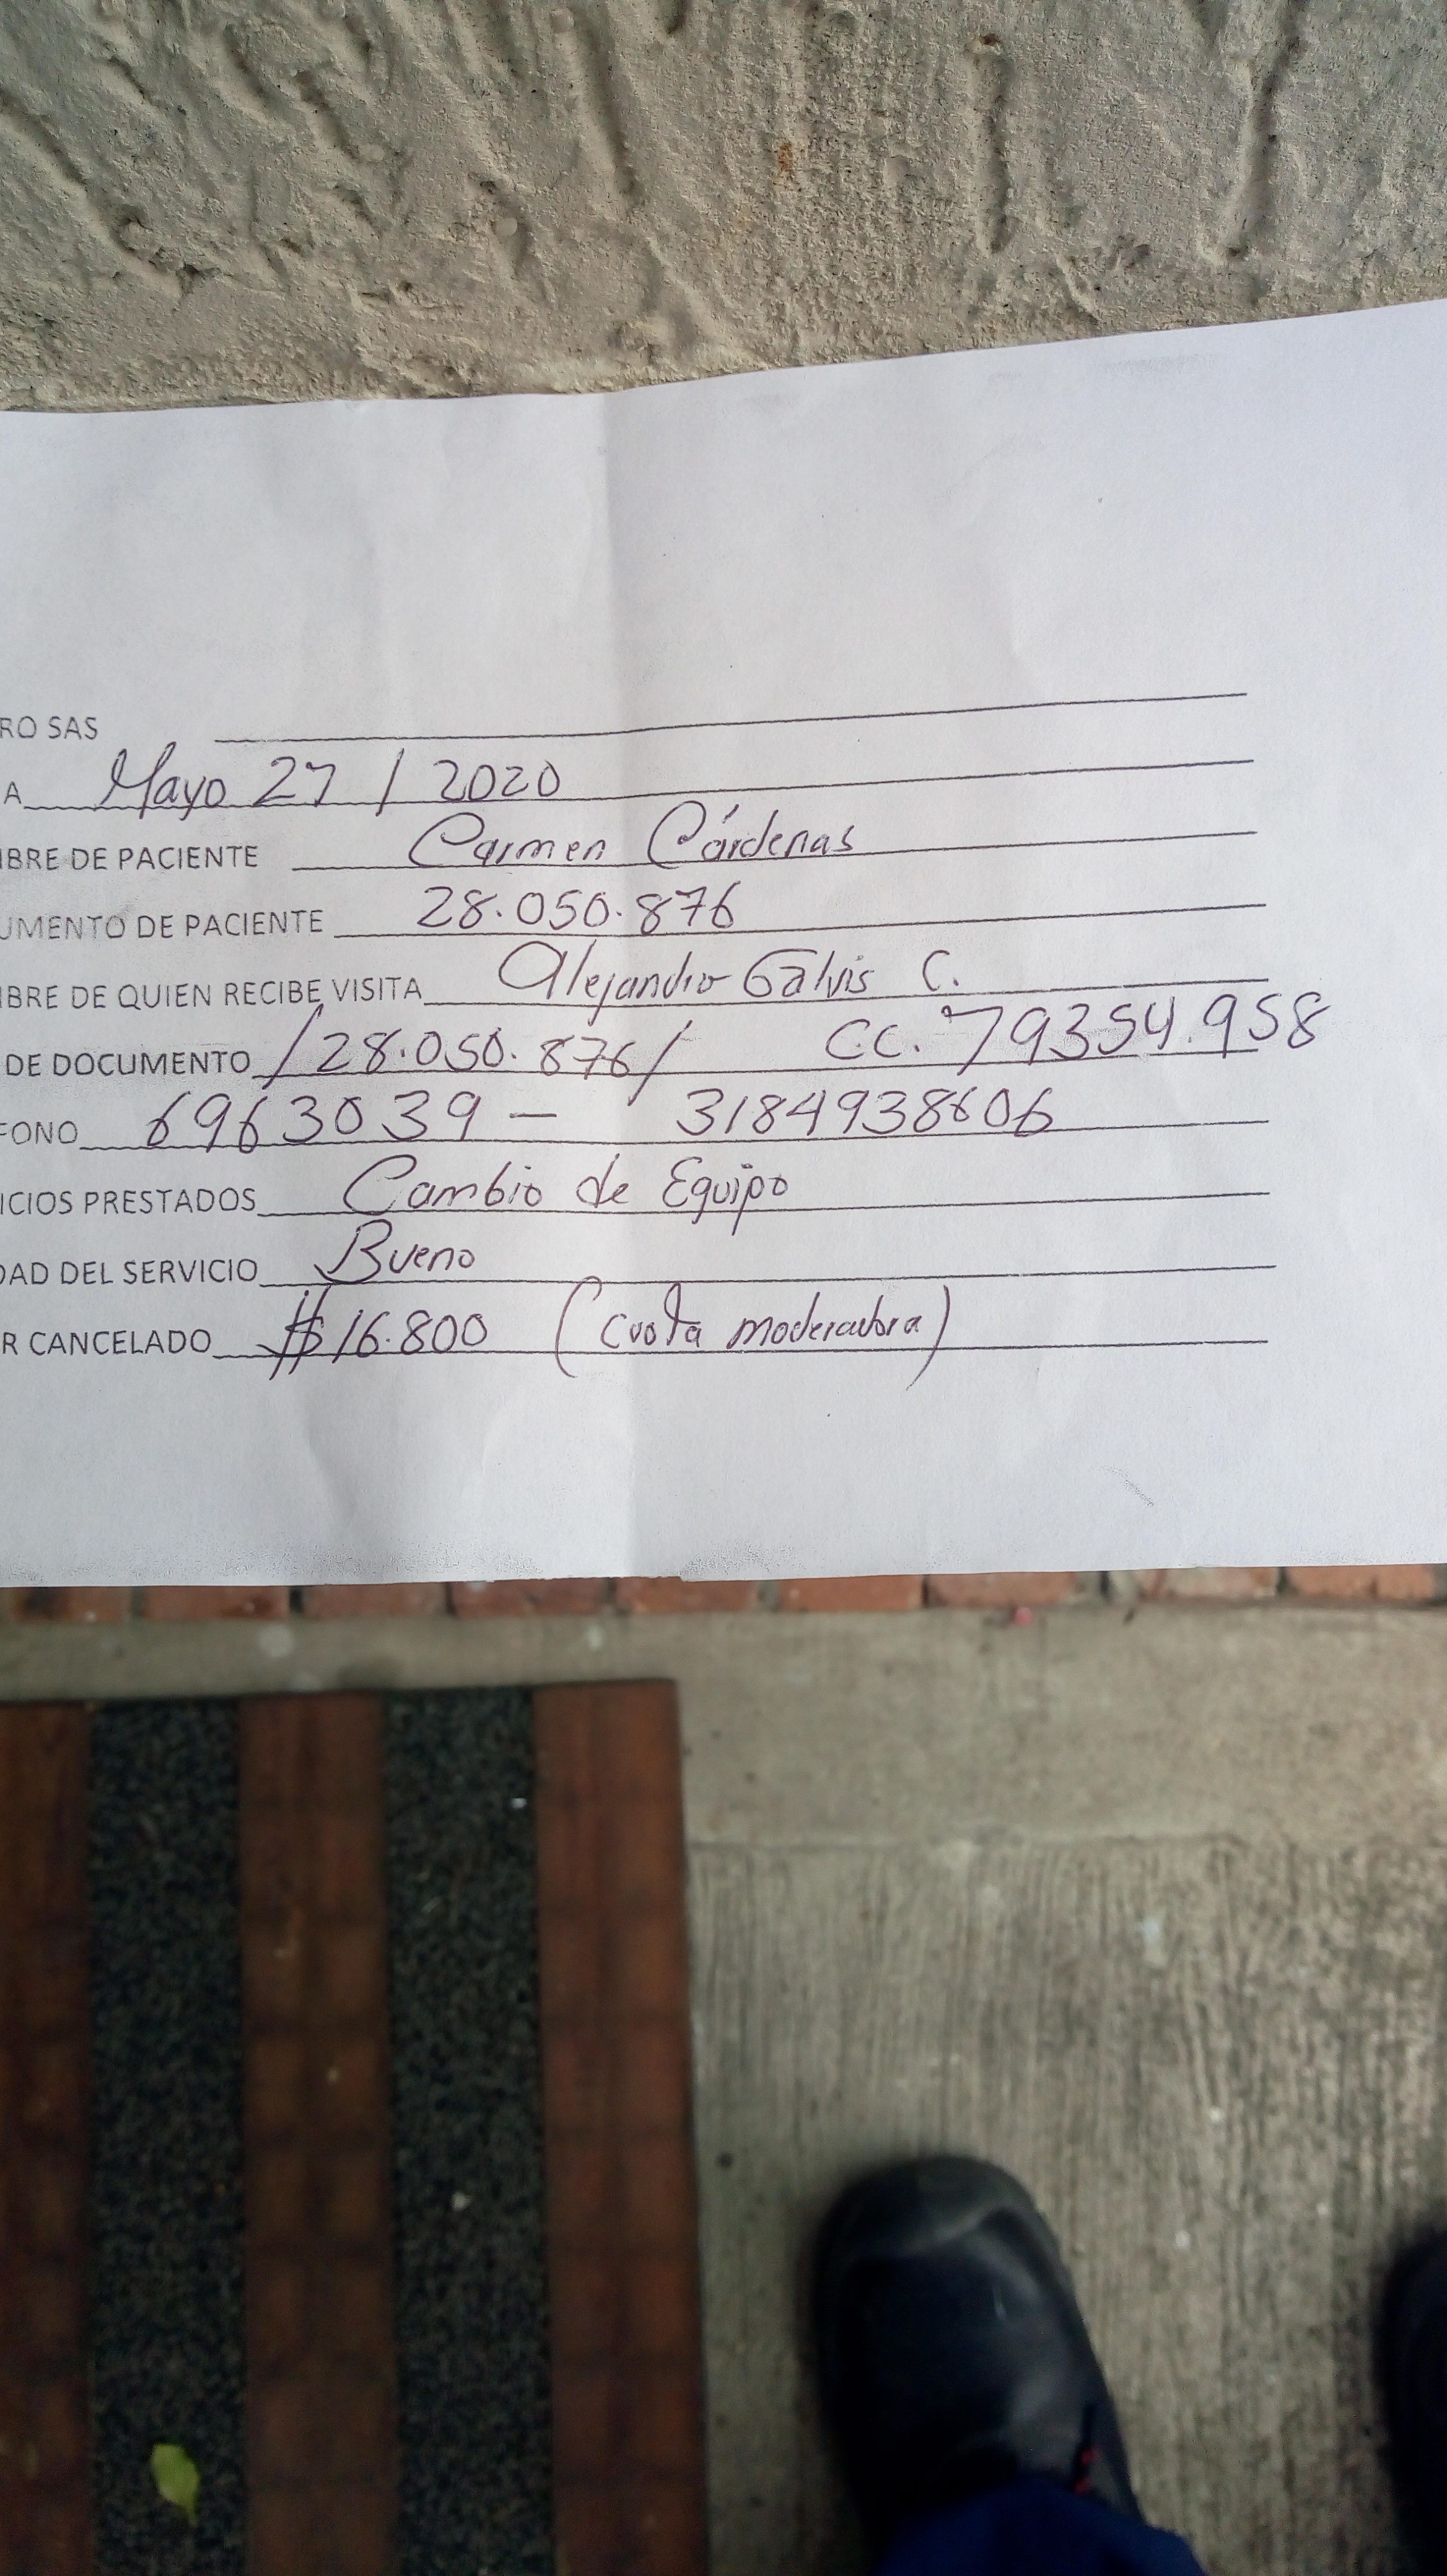 RO SAS
A Mayo 27 / 2020
BRE DE PACIENTE Carmen Cárdenas
UMENTO DE PACIENTE 28.050.876
BRE DE QUIEN RECIBE VISITA Alejandro Galvis C.
DE DOCUMENTO /28.050.876/ CC. 79354.958
FONO 6963039 - 3184938606
ICIOS PRESTADOS Cambio de Equipo
DAD DEL SERVICIO Bueno
R CANCELADO $16.800 (cuota moderadora)